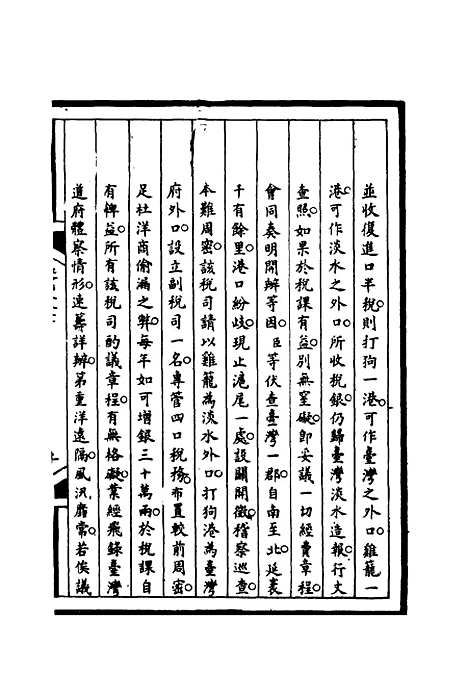 並收復進口半稅則打狗一港可作臺灣之外口雞籠一
港可作淡水之外口所收稅銀仍歸臺灣淡水造報行文
查照如果於稅課有益別無窒礙卽妥議一切經費章程
會同奏明開辦等因臣等伏查臺灣一郡自南至北延袤
千有餘里港口紛歧現止滬尾一處設關開徵稽察巡查
本難周密該稅司請以雞籠為淡水外口打狗港為臺灣
府外口設立副稅司一名專管四口稅務布置較前周密
足杜洋商偷漏之弊每年如可增銀三十萬兩於稅課自
有裨益所有該稅司酌議章程有無格礙業經飛錄臺灣
道府體察情形速籌詳辦第重洋遠隔風汛靡常若俟議